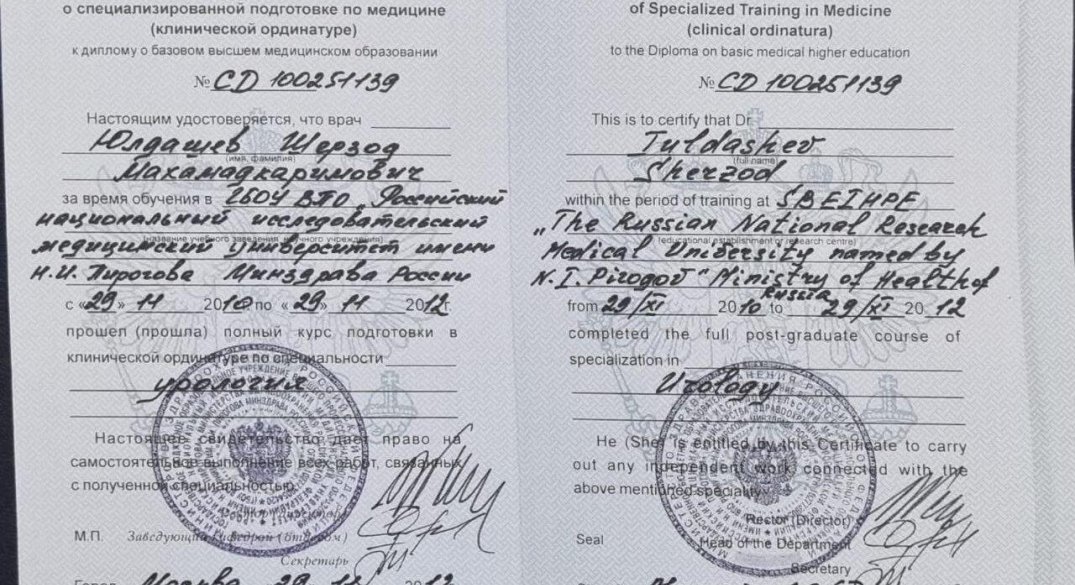 о специализированной подготовке по медицине
(клинической ординатуре)
к диплому о базовом высшем медицинском образовании
№ СД 100251139
Настоящим удостоверяется, что врач
Юлдашев Шерзод
(имя, фамилия)
Махамадкаримович
за время обучения в ГБОУ ВПО „Российский
национальный исследовательский
(название учебного заведения, научного учреждения)
медицинский университет имени
Н.И. Пирогова Минздрава России
с «29» 11 2010 по «29» 11 2012 г.
прошел (прошла) полный курс подготовки в
клинической ординатуре по специальности
урология
Настоящее свидетельство дает право на
самостоятельное выполнение всех работ, связанных
с полученной специальностью.
М.П. Заведующий кафедрой (отделом)
Секретарь
Город Москва 29 11 2012
of Specialized Training in Medicine
(clinical ordinatura)
to the Diploma on basic medical higher education
№ СД 100251139
This is to certify that Dr.
Yuldashev
(full name)
Sherzod
within the period of training at SBEIHPE
„The Russian National Research
(educational establishment or research centre)
Medical University named by
N.I. Pirogov" Ministry of Health of
Russia
from 29/XI 2010 to 29/XI 2012
completed the full post-graduate course of
specialization in
Urology
He (She) is entitled by this Certificate to carry
out any independent work connected with the
above mentioned speciality
Rector (Director)
Seal Head of the Department
Secretary